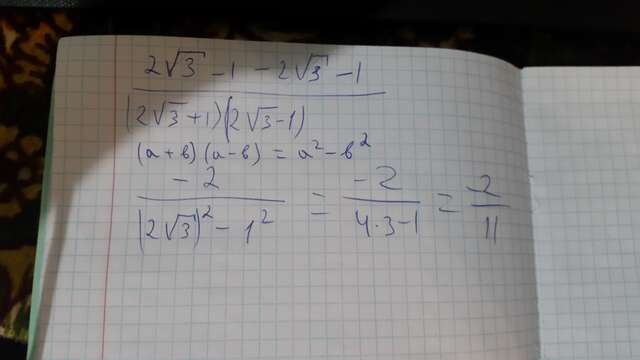 2√3 - 1 - 2√3 - 1
(2√3 + 1)(2√3 - 1)
(a + b)(a - b) = a² - b²
-2 = -2 = 2
(2√3)² - 1² 4·3-1 11